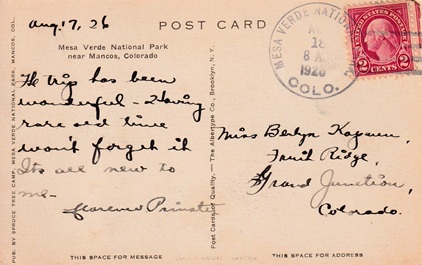 Aug. 17, 26
POST CARD
Mesa Verde National Park
near Mancos, Colorado
The trip has been
wonderful - Having
rare old time
won't forget it
Its all new to
me -
Florence
PUB. BY SPRUCE TREE CAMP, MESA VERDE NATIONAL PARK, MANCOS, COL.
Post Cards of Quality. — The Albertype Co., Brooklyn, N. Y.
MESA VERDE NATIONAL
18
8 A
1926
COLO.
UNITED STATES POSTAGE
2 CENTS 2
Miss
Fruit Ridge,
Grand Junction,
Colorado.
THIS SPACE FOR MESSAGE
THIS SPACE FOR ADDRESS